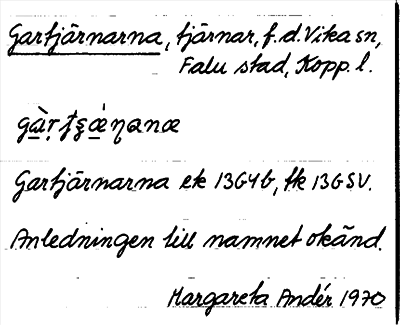 Gartjärnarna, tjärnar, f.d. Vika sn,
Falu stad, Kopp. l.
Gartjärnarna ek 13G4b, tk 13GSV.
Anledningen till namnet okänd.
Margareta Andér 1970